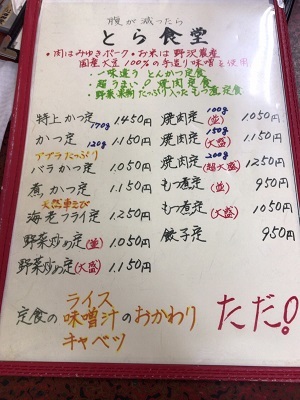 腹が減ったら
とら食堂
・肉はみゆきポーク・お米は野沢農産
国産大豆100%の手造り味噌を使用
・一味違う とんかつ定食
・超うまい○焼肉定食
・野菜たっぷり入ったもつ煮定食
特上かつ定 170g 1450円
かつ定 120g 1,150円
アブラたっぷり
バラかつ定 1,050円
煮かつ定 1,150円
天然車えび
海老フライ定 1,250円
野菜炒め定(並) 1,050円
野菜炒め定(大盛) 1,150円
焼肉定(並) 100g 1,050円
焼肉定(大盛) 150g 1,150円
焼肉定(超大盛) 200g 1250円
もつ煮定(並) 950円
もつ煮定(大盛) 1,050円
餃子定 950円
定食の ライス
味噌汁のおかわり
キャベツ
ただ!